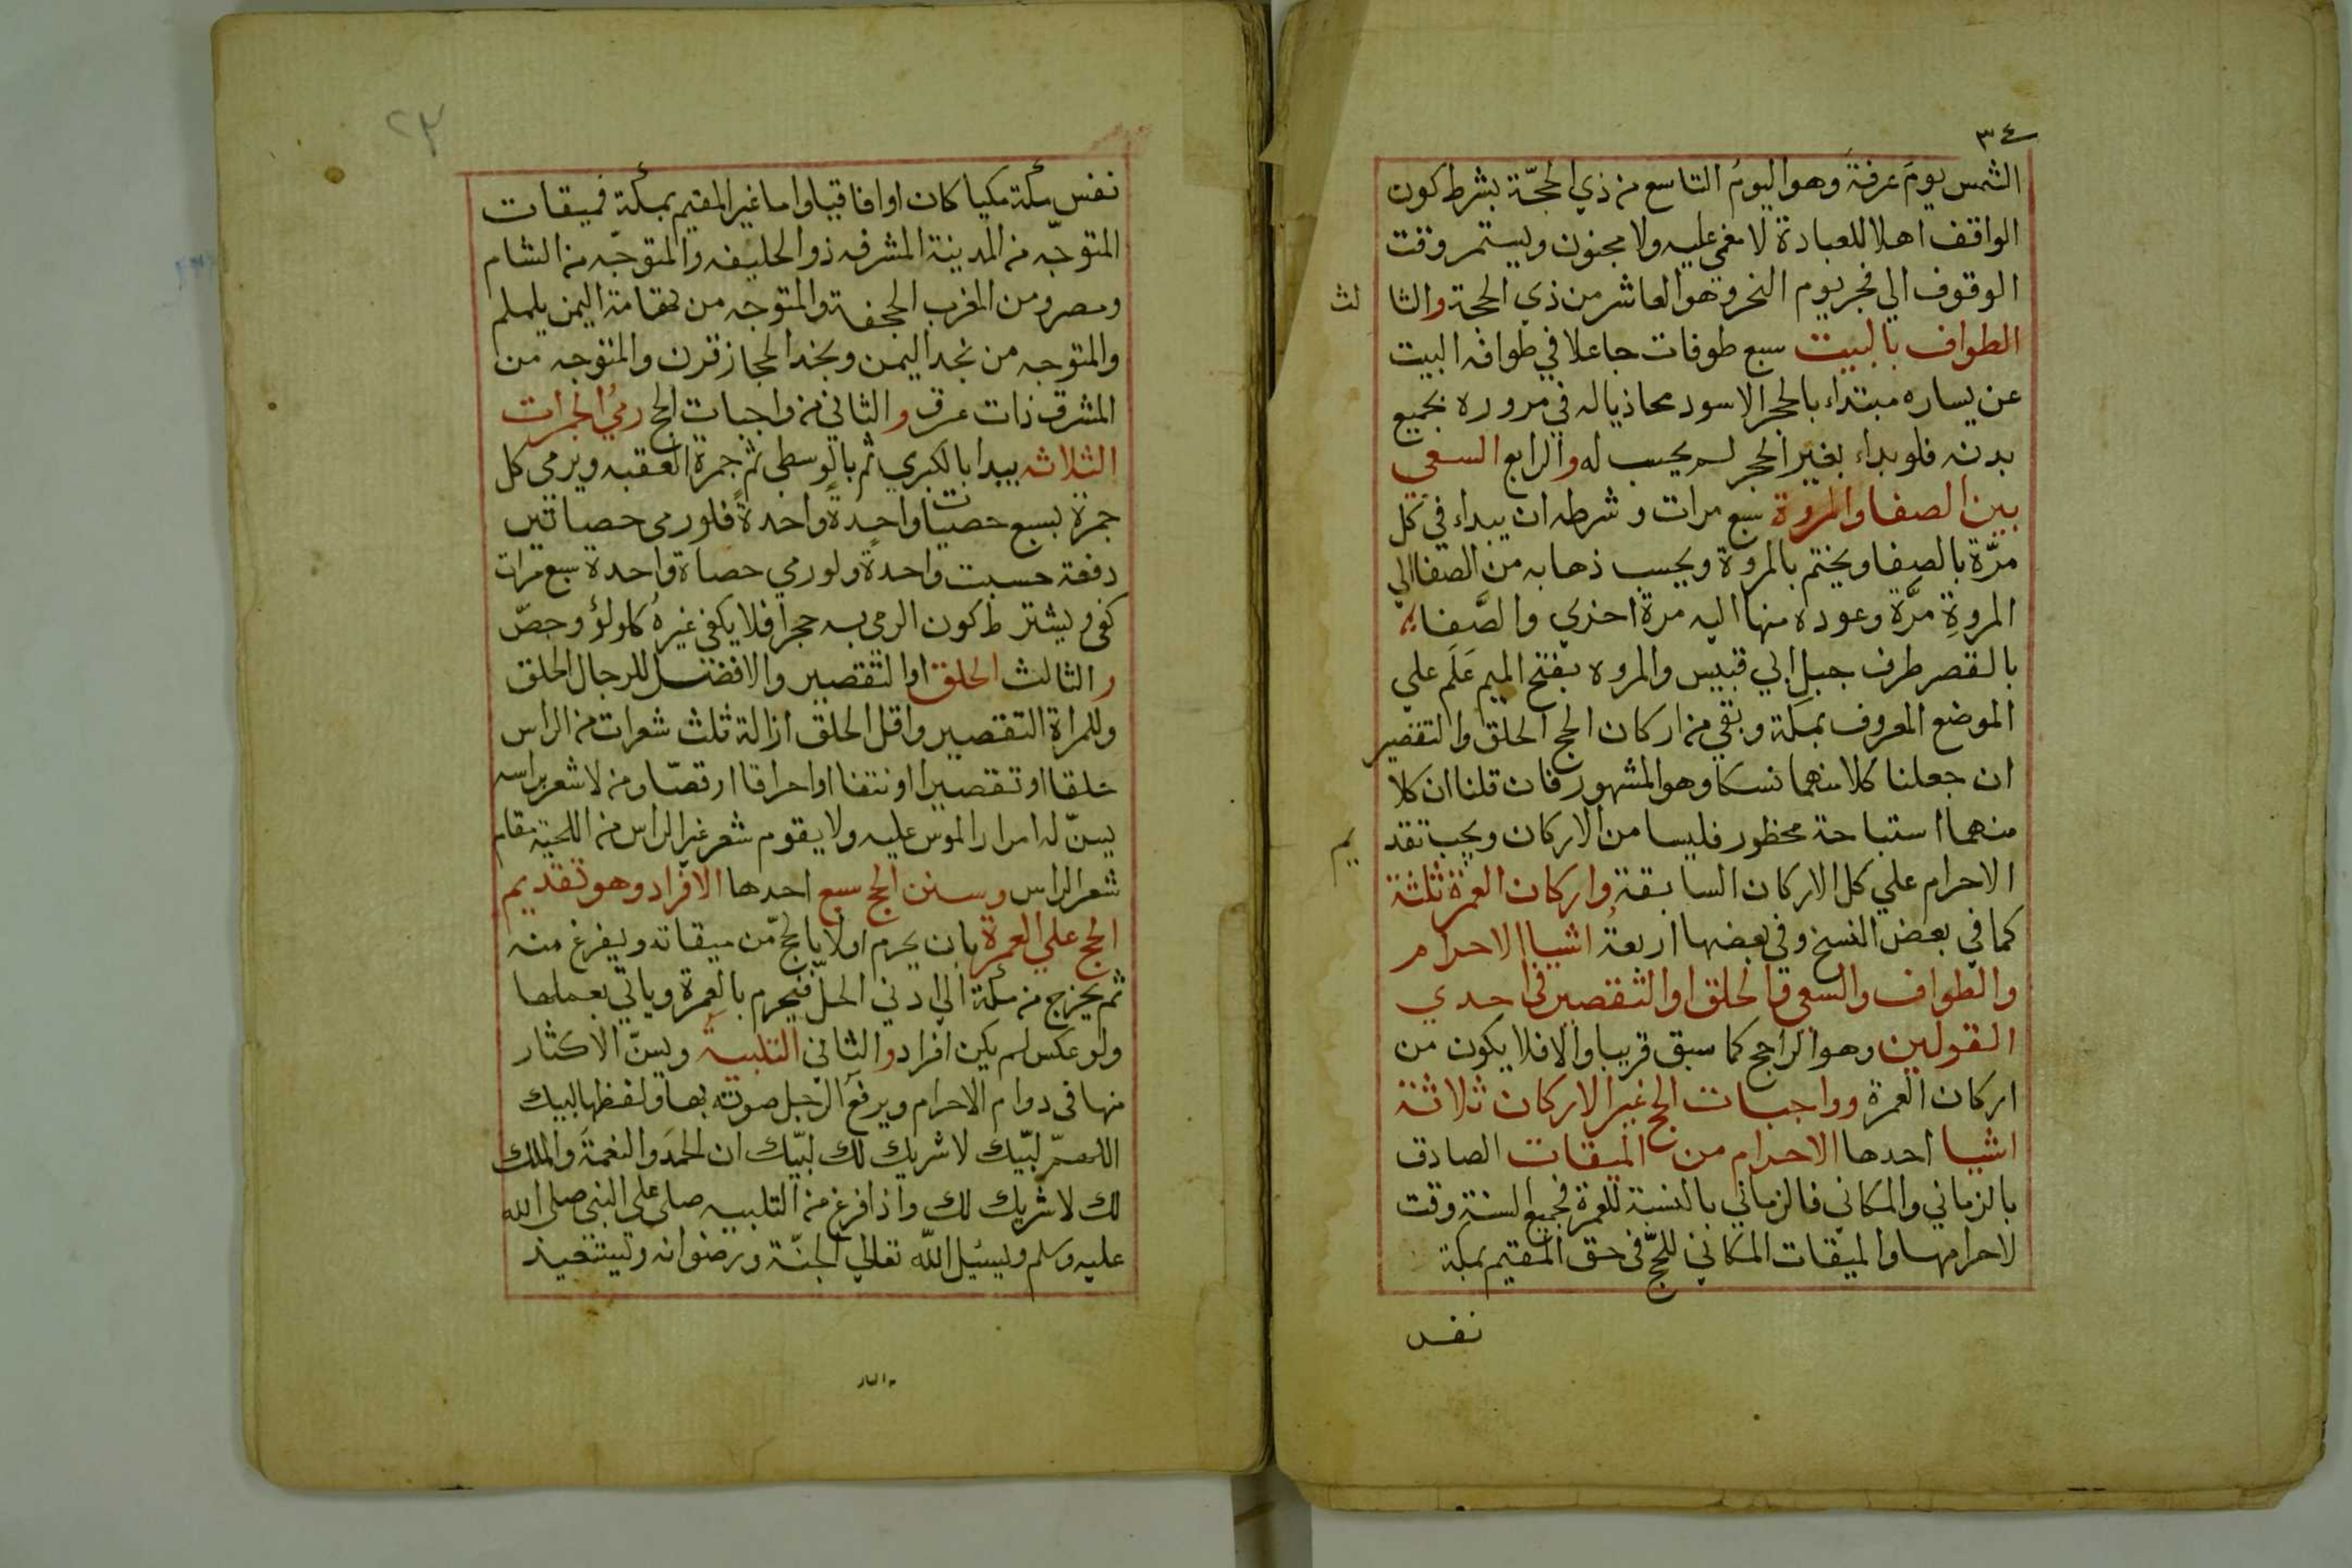 ٣٤
الشمس يومَ عرفة وهو اليومُ التاسع من ذي الحجّة بشرط كون
الواقف اهلا للعبادة لا مغمي عليه ولا مجنون ويستمر وقت
الوقوف الي فجر يوم النحر وهو العاشر من ذي الحجة والثا لث
الطواف بالبيت سبع طوفات جاعلا في طوافه البيت
عن يساره مبتداء بالحجر الاسود محاذيا له في مروره بجميع
بدنه فلو بداء بغير الحجر لم يحسب له والرابع السعي
بين الصفا والمروة سبع مرات وشرطه ان يبداء في كل
مرّة بالصفا ويختم بالمروة ويحسب ذهابه من الصفا الي
المروةِ مرَّة وعوده منها اليه مرة اخري والصَّفا
بالقصر طرف جبل ابي قبيس والمروه بفتح الميم عَلَم علي
الموضع المعروف بمكة وبقي من اركان الحج الحلق والتقصير
ان جعلنا كلا منهما نسكا وهو المشهور فان قلنا ان كلا
منهما استباحة محظور فليسا من الاركان ويجب تقد يم
الاحرام علي كل الاركان السابقة واركان العمرة ثلثة
كما في بعض النسخ وفي بعضها اربعةُ اشيا الاحرام
والطواف والسعي والحلق او التقصير في احدي
القولين وهو الراجح كما سبق قريبا والا فلا يكون من
اركان العمرة وواجبات الحج غير الاركان ثلاثة
اشيا احدها الاحرام من الميقات الصادق
بالزماني والمكاني فالزماني بالنسبة للعمرة فجميع السنةِ وقت
لاحرامها والميقات المكاني للحجّ في حق المقيم بمكة
نفس
٢٣
نفس مكة مكيا كان او افاقيا واما غير المقيم بمكة فميقات
المتوجّه من المدينة المشرفه ذو الحليفه والمتوجّه من الشام
ومصر ومن المغرب الجحفة والمتوجه من تهامة اليمن يلملم
والمتوجه من نجد اليمن ونجد الحجاز قرن والمتوجه من
المشرق ذات عرق والثاني من واجبات الحج رميُ الجمرات
الثلاثه يبدا بالكبري ثم بالوسطي ثم جمرة العقبه ويرمي كل
جمرة بسبع حصيات واحدةً واحدةً فلو رمي حصاتين
دفعة حسبت واحدة ولو رمي حصاة واحدة سبع مرات
كفي ويشترط كون الرمي به حجرا فلا يكفي غيرهُ كلولؤ وجصّ
والثالث الحلق او التقصير والافضل للرجال الحلق
وللمراة التقصير واقل الحلق ازالة ثلث شعرات من الراس
حلقا او تقصيرا او نتفا او احراقا او قصّا ومن لا شعر براسه
يسنّ له امرار الموس عليه ولا يقوم شعر غير الراس من اللحية مقام
شعر الراس وسنن الحج سبع احدها الافراد وهو تقديم
الحج علي العمرة بان يحرم اولا بالحج من ميقاته ويفرغ منه
ثم يخرج من مكة الي ادني الحلّ فيحرم بالعمرة وياتي بعملها
ولو عكس لم يكن افراد والثاني التلبية ويسنّ الاكثار
منها في دوام الاحرام ويرفع الرجل صوته بها ولفظها لبيك
اللهمّ لبّيك لا شريك لك لبّيك ان الحمدَ والنعمةَ والملك
لك لا شريك لك واذا فرغ من التلبيه صلي علي النبي صلي الله
عليه وسلم ويسئل الله تعالي الجنّة ورضوانه ويستعيذ